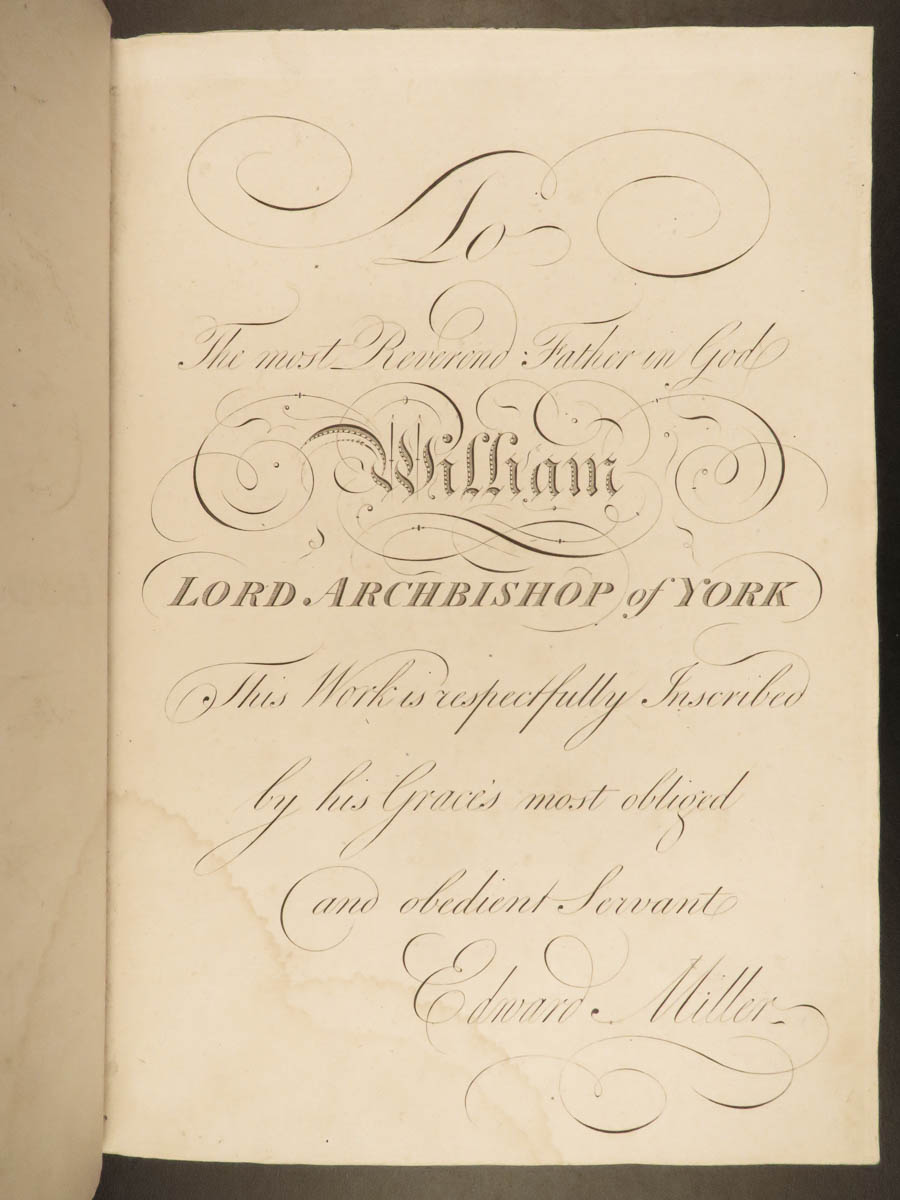 To
The most Reverend Father in God
William
LORD ARCHBISHOP of YORK
This Work is respectfully Inscribed
by his Grace's most obliged
and obedient Servant
Edward Miller